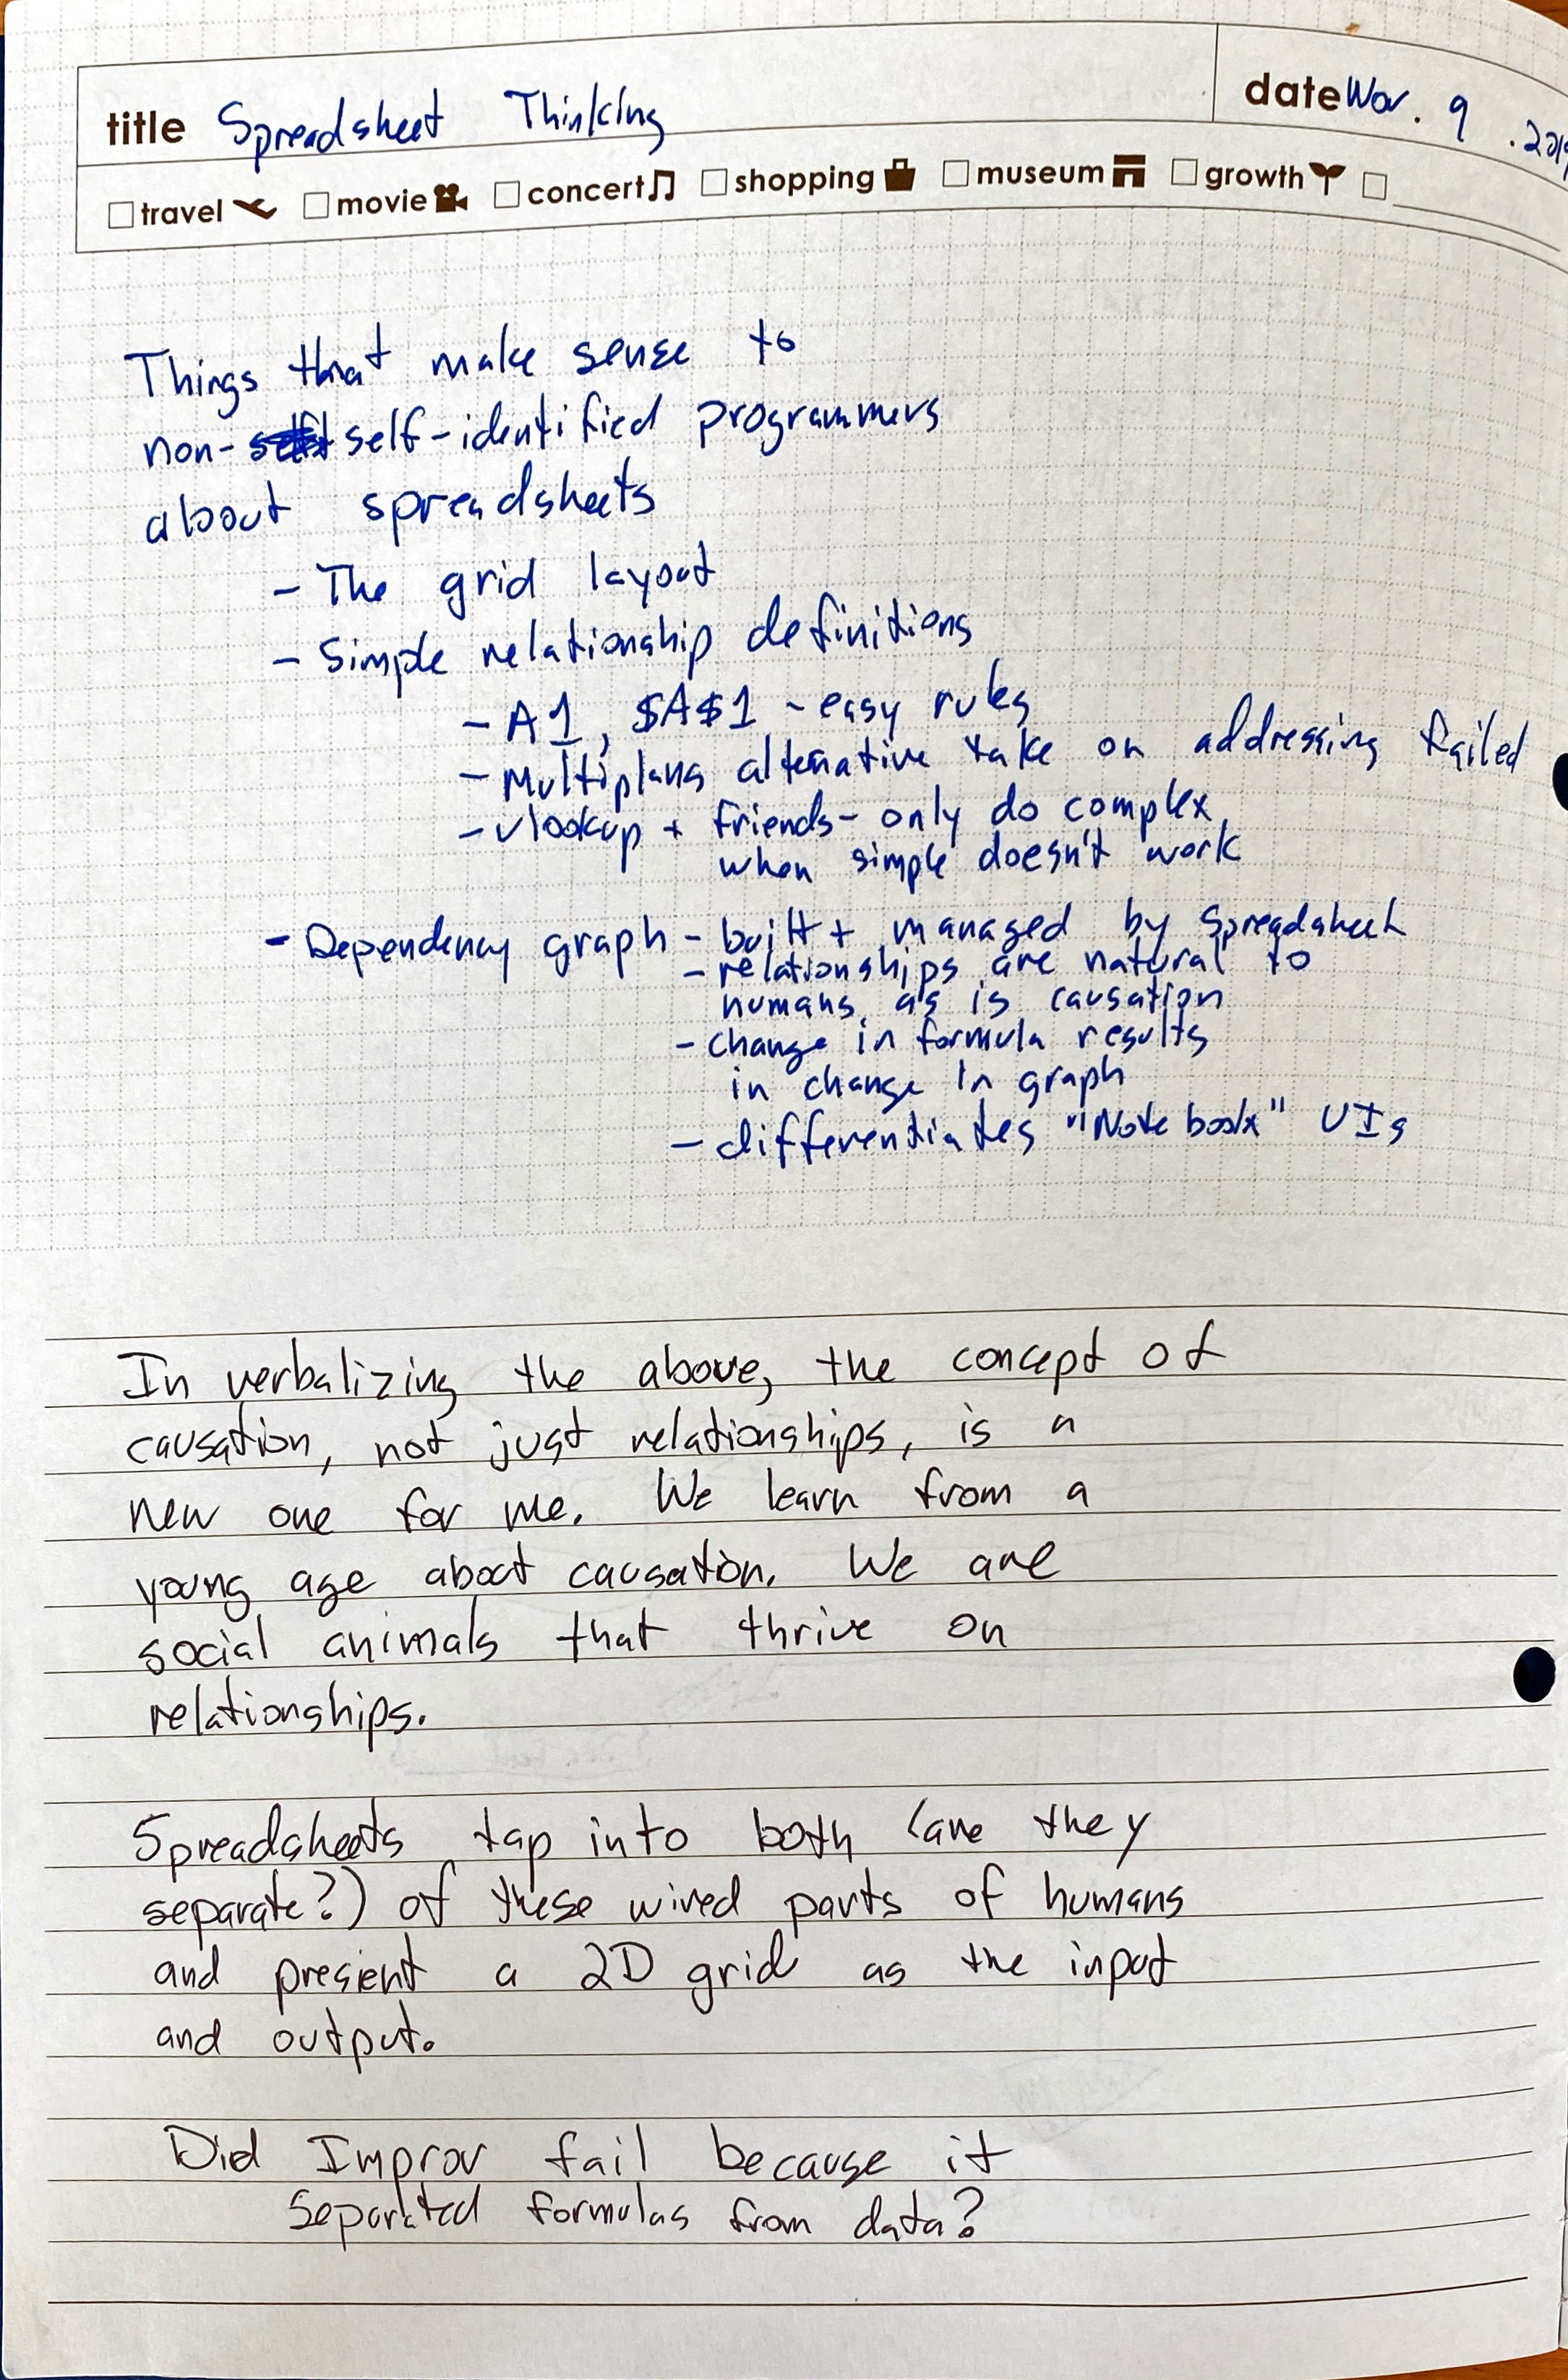 title Spreadsheet Thinking
date Nov. 9 . 201
travel movie concert shopping museum growth
Things that make sense to
non- self-identified programmers
about spreadsheets
- The grid layout
- Simple relationship definitions
- A1, $A$1 - easy rules
- Multiplans alternative take on addressing failed
- vlookup + friends - only do complex
when simple doesn't work
- Dependency graph - built + managed by Spreadsheet
- relationships are natural to
humans, as is causation
- change in formula results
in change in graph
- differentiates "Notebook" UIs
In verbalizing the above, the concept of
causation, not just relationships, is a
new one for me. We learn from a
young age about causation. We are
social animals that thrive on
relationships.
Spreadsheets tap into both (are they
separate?) of these wired parts of humans
and present a 2D grid as the input
and output.
Did Improv fail because it
separated formulas from data?